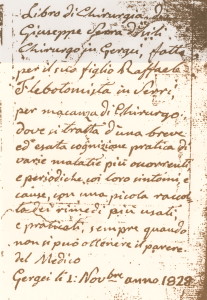 Libro di Chirurgia di
Giuseppe
Chirurgo in Gergei, fatto
per il suo figlio Raffaele
Flebotomista in Serri
per macanza di Chirurgo
dove si tratta d'una breve
ed esata cognizione pratica di
varie malatie più occorrenti
e periodiche, coi loro sintomi,
cause, con una picola racol
ta dei rimedi più usati,
e praticati, sempre quando
non si può ottenere il parere
del Medico
Gergei li 1: Novbre anno 1828